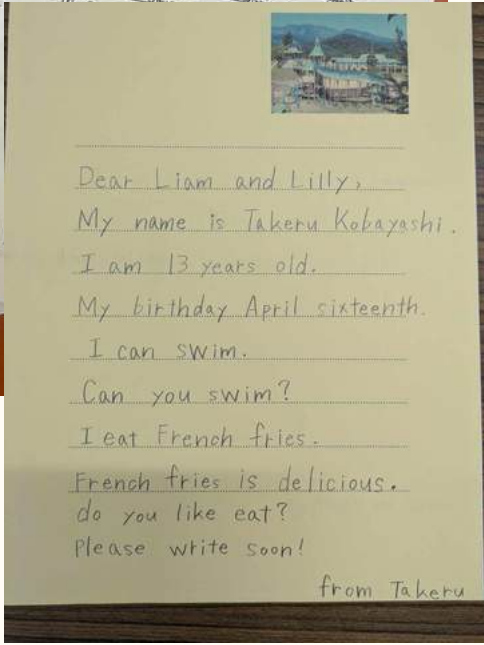 Dear Liam and Lilly,
My name is Takeru Kobayashi.
I am 13 years old.
My birthday April sixteenth.
I can swim.
Can you swim?
I eat French fries.
French fries is delicious.
do you like eat?
Please write soon!
from Takeru